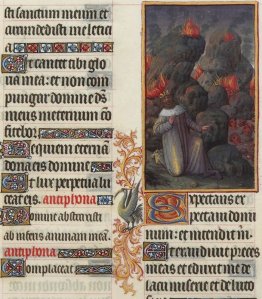 sti saccum meum et
circumdedisti me leticia
Ut cantet tibi glo
ria mea: et non com
pungar domine ds
meus in eternum con
fitebor.
Requiem eternā
dona eis domine
Et lux perpetua lu
ceat eis. antiphona
Domine abstraxisti
ab inferis animam meam.
antiphona
Complaceat
Expectans ex
pectaui domi
num: et intendit m
Et exaudiuit preces
meas et eduxit me de
lacu miserie et de luto